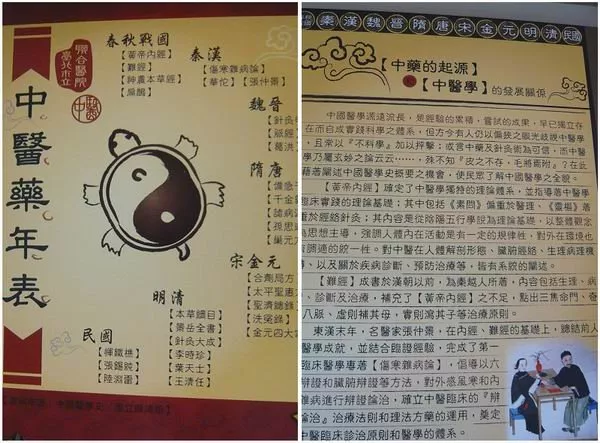 春秋戰國
【黃帝內經】
【難經】
【神農本草經】
【扁鵲】
秦漢
【傷寒雜病論】
【華佗】【張仲景】
魏晉
【針灸
【脈經
【葛洪
隋唐
【備急
【千金
【諸病
【孫思
【巢元
宋金元
【合劑局方
【太平聖惠
【聖濟總錄
【洗冤錄】
【金元四大
明清
【本草綱目】
【景岳全書】
【針灸大成】
【李時珍】
【葉天士】
【王清任】
民國
【惲鐵樵】
【張錫鈍】
【陸淵雷】
中醫藥年表
聯合醫院
臺北市立
中醫
秦漢魏晉隋唐宋金元明清民國
【中藥的起源】
與【中醫學】的發展關係
中國醫學源遠流長，是經驗的累積，嘗試的成果，早已獨立存
在而自成實踐科學之體系，但方今有人仍以偏狹之眼光歧視中醫學
，且常以『不科學』加以抨擊；或言中藥及針灸術為可信，而中醫
學乃屬玄妙之論云云……，殊不知『皮之不存，毛將焉附』？在此
藉著闡述中國醫學史概要之機會，使民眾了解中國醫學之全貌。
【黃帝內經】確定了中醫學獨特的理論體系，並指導著中醫學
臨床實踐的理論基礎；其中包括《素問》偏重於醫理、《靈樞》著
重於經絡針灸；其內容是從陰陽五行學說為理論基礎，以整體觀念
為思想主導，強調人體內在活動是有一定的規律性，對外在環境也
強調適的統一性。對中醫在人體解剖形態、臟腑經絡、生理病理機
、以及關於疾病診斷、預防治療等，皆有系統的闡述。
【難經】成書於漢朝以前，為秦越人所著，內容包括生理、病
、診斷及治療，補充了【黃帝內經】之不足，點出三焦命門、奇
八脈、虛則補其母，實則瀉其子等治療原則。
東漢末年，名醫家張仲景，在內經、難經的基礎上，總結前人
醫學成就，並結合臨證經驗，完成了第一
臨床醫學專著【傷寒雜病論】，倡導以六
辯證和臟腑辯證等方法，對外感風寒和內
雜病進行辯證論治，確立中醫臨床的『辯
論治』治療法則和理法方藥的運用，奠定
中醫臨床診治原則和醫學的體系。